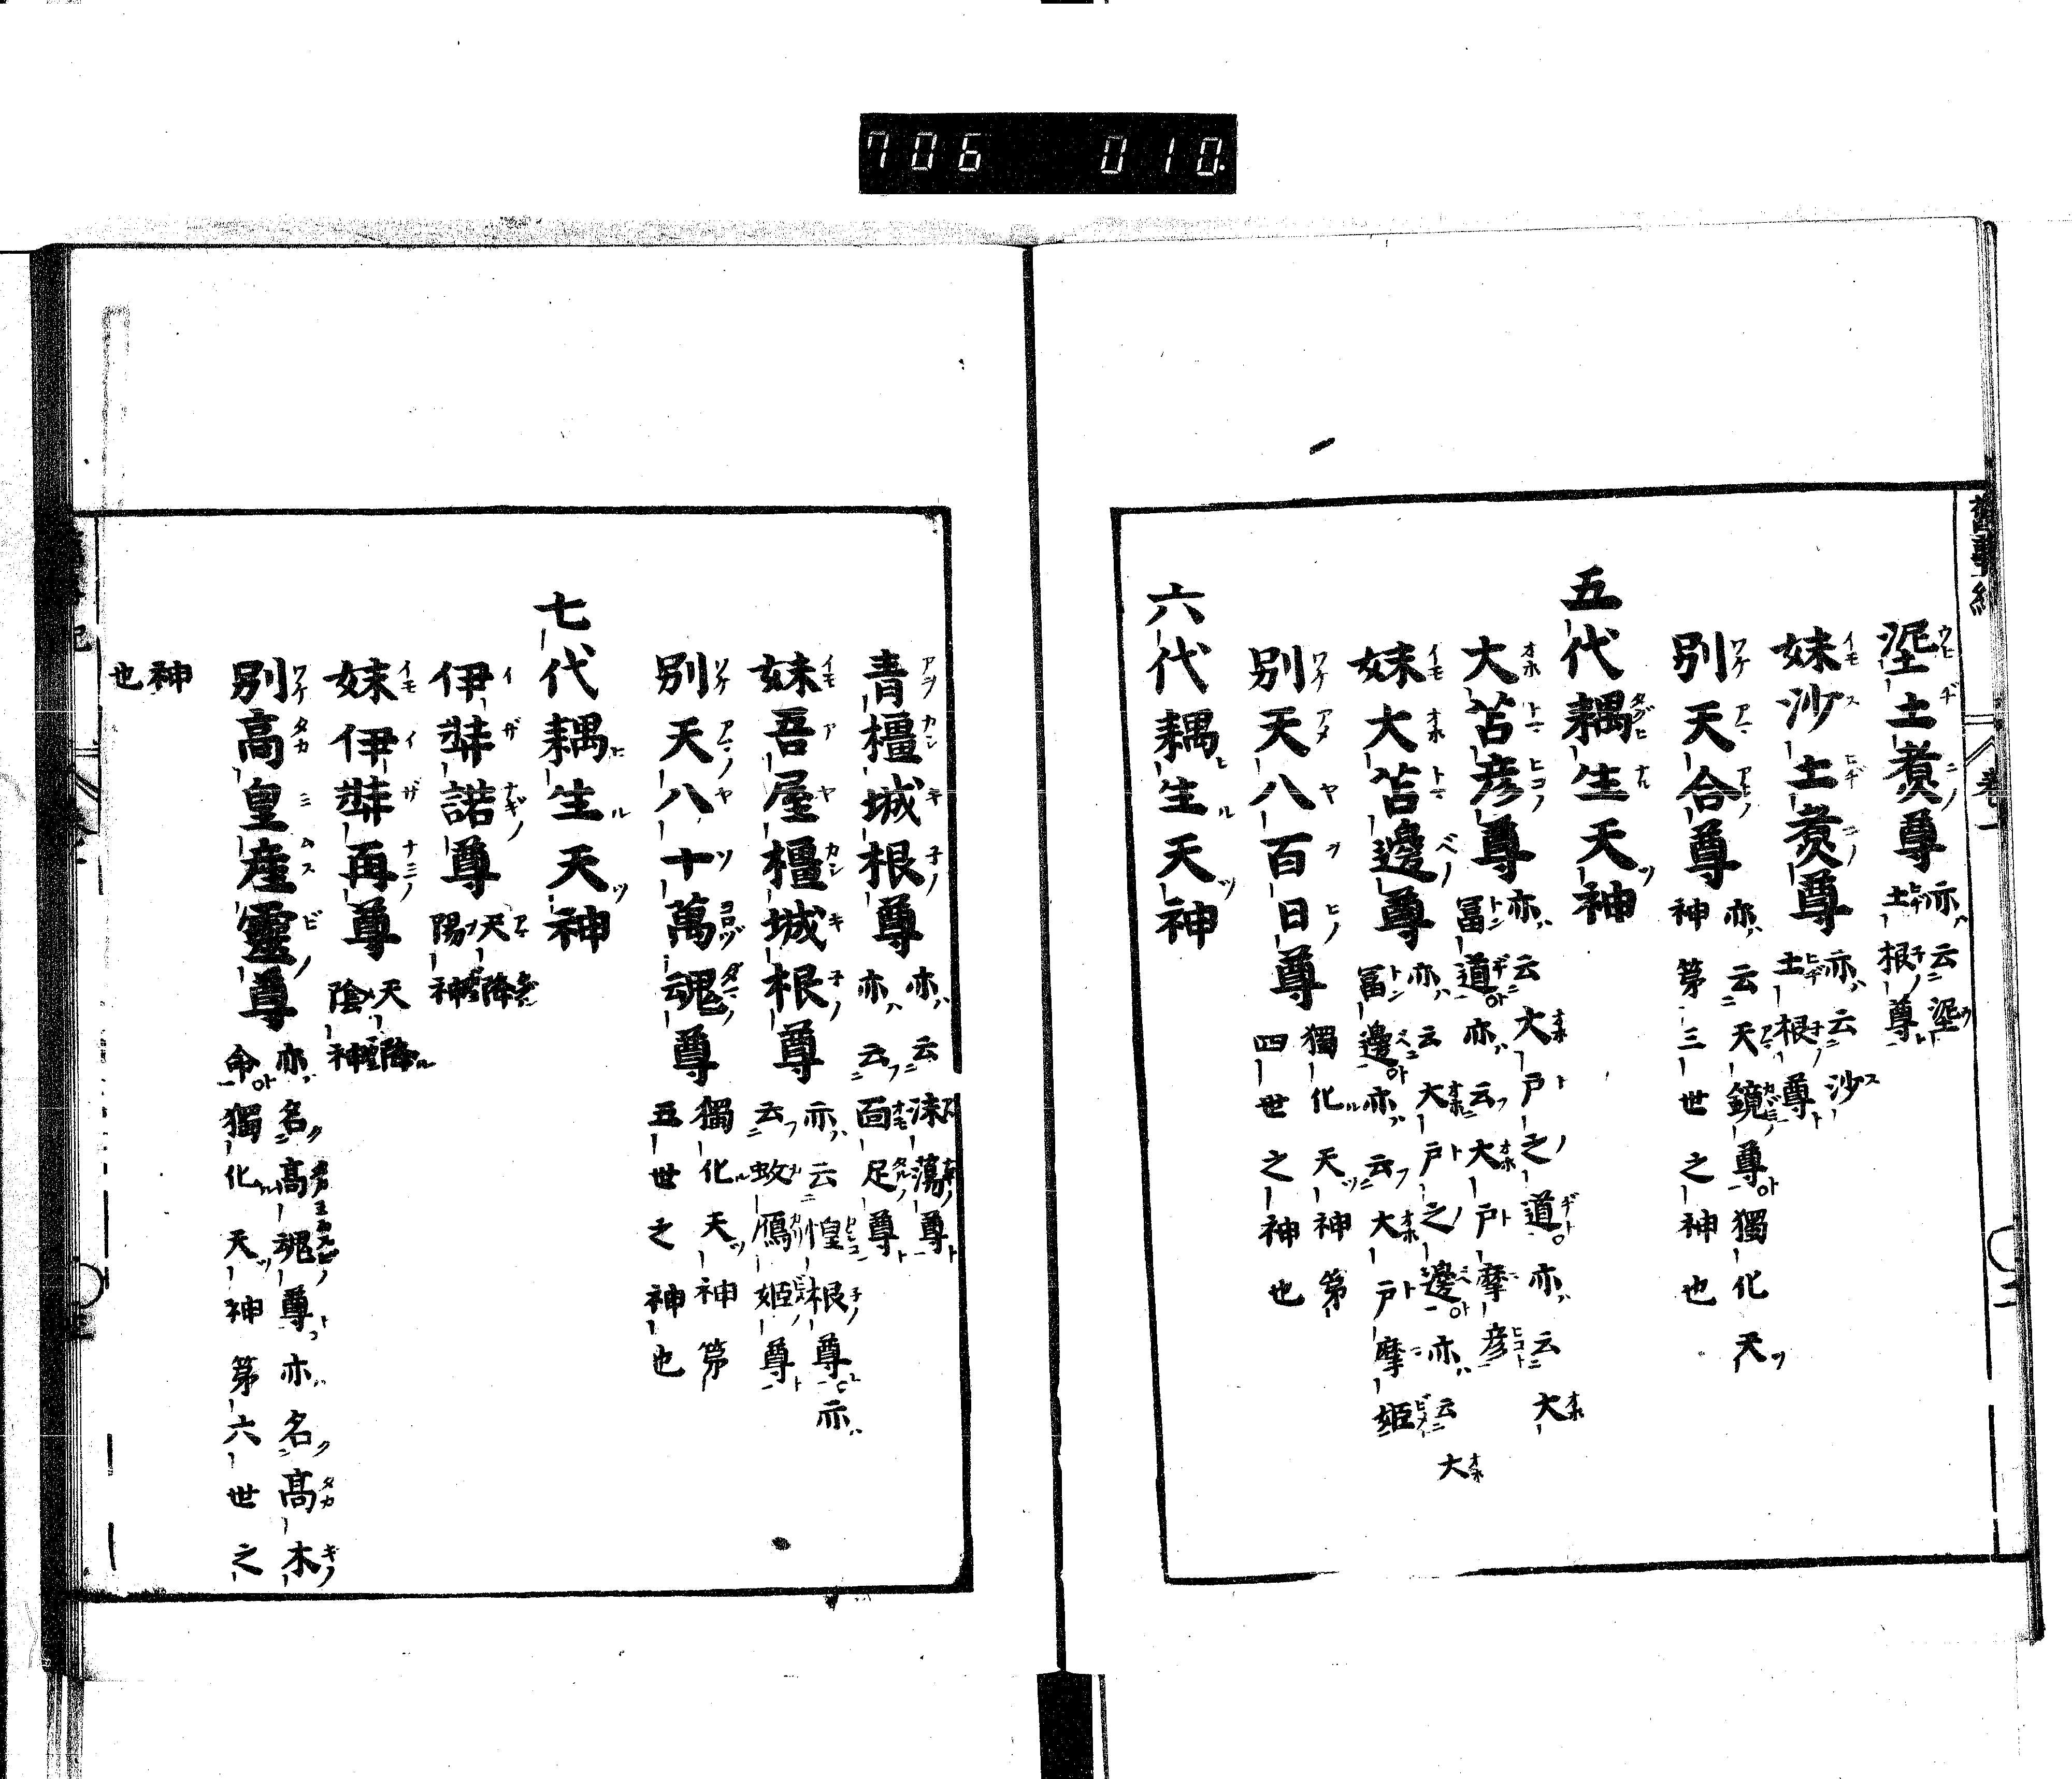 706 010
舊事紀 卷一
埿土煑尊 亦云埿土根尊
妹沙土煑尊 亦云沙土根尊
別天合尊 亦云天鏡尊獨化天神第三世之神也
五代耦生天神
大苫彦尊 亦云大戸之道亦云大冨道亦云大戸摩彦
妹大苫邊尊 亦云大戸之邊亦云大冨邊亦云大戸摩姫
別天八百日尊 獨化天神第四世之神也
六代耦生天神
青橿城根尊 亦云沫蕩尊亦云面足尊
妹吾屋橿城根尊 亦云惶根尊亦云蚊鴈姫尊
別天八十萬魂尊 獨化天神第五世之神也
七代耦生天神
伊弉諾尊 天降陽神
妹伊弉再尊 天降陰神
別高皇産靈尊 亦名高魂尊亦名高木命獨化天神第六世之
神也